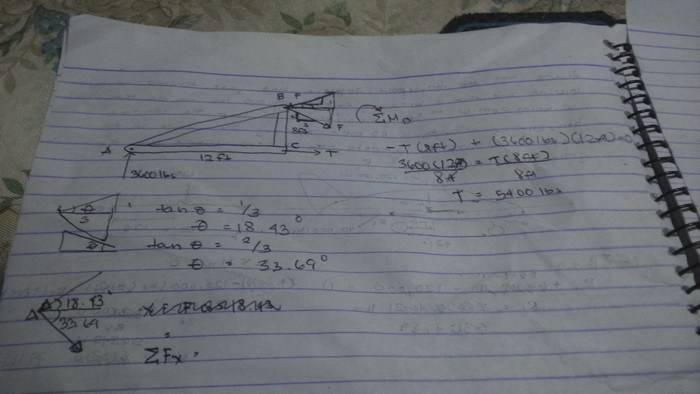 B F
F
8ft
A
12 ft
C
T
3600 lbs
ΣM
-T(8ft) + (3600 lbs)(12ft) = 0
3600(12ft) = T(8ft)
8ft 8ft
T = 5400 lbs
3
tan θ = 1/3
θ = 18.43°
tan θ = 2/3
θ = 33.69°
18.43°
33.69
ΣFx =